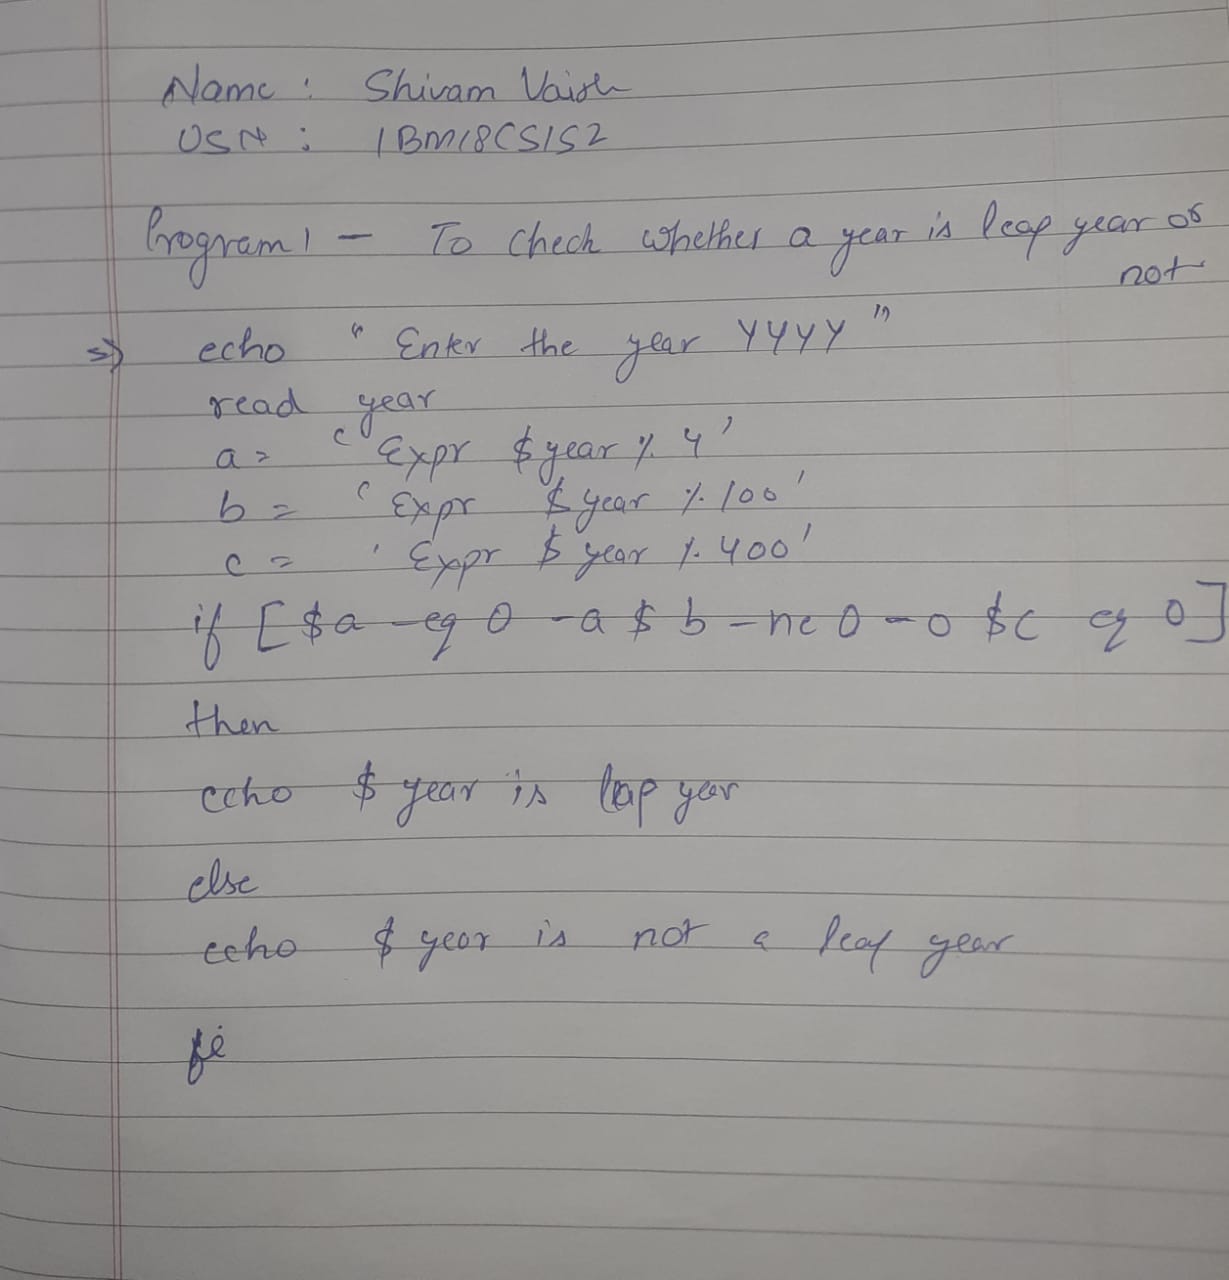 Name : Shivam Vaish
USN : 1BM18CS152
Program 1 - To Check whether a year is leap year or
not
=> echo " Enter the year YYYY "
read year
a = ' Expr $ year % 4 '
b = ' Expr $ year % 100 '
c = ' Expr $ year % 400 '
if [ $a -eq 0 -a $ b -ne 0 -o $c eq 0 ]
then
echo $ year is leap year
else
echo $ year is not a leap year
fi